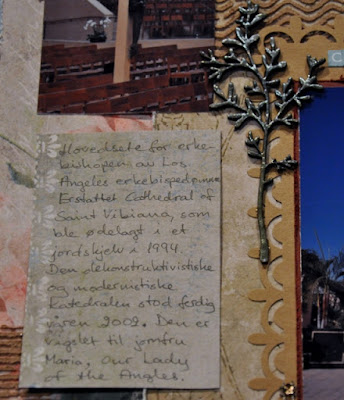 Hovedsete for erke-
biskopen av Los
Angeles erkebispedømme
Erstattet Cathedral of
Saint Vibiana, som
ble ødelagt i et
jordskjelv i 1994.
Den dekonstruktivistiske
og modernistiske
Katedralen stod ferdig
våren 2002. Den er
vigslet til jomfru
Maria. Our Lady
of the Angles.
C